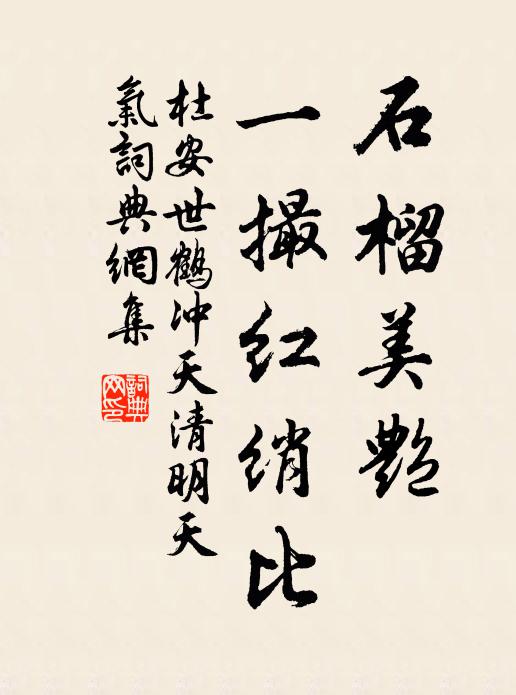 石榴美艷
一撮红绡比
杜安世鹤冲天清明天
氣詞典網集
詞典
网印